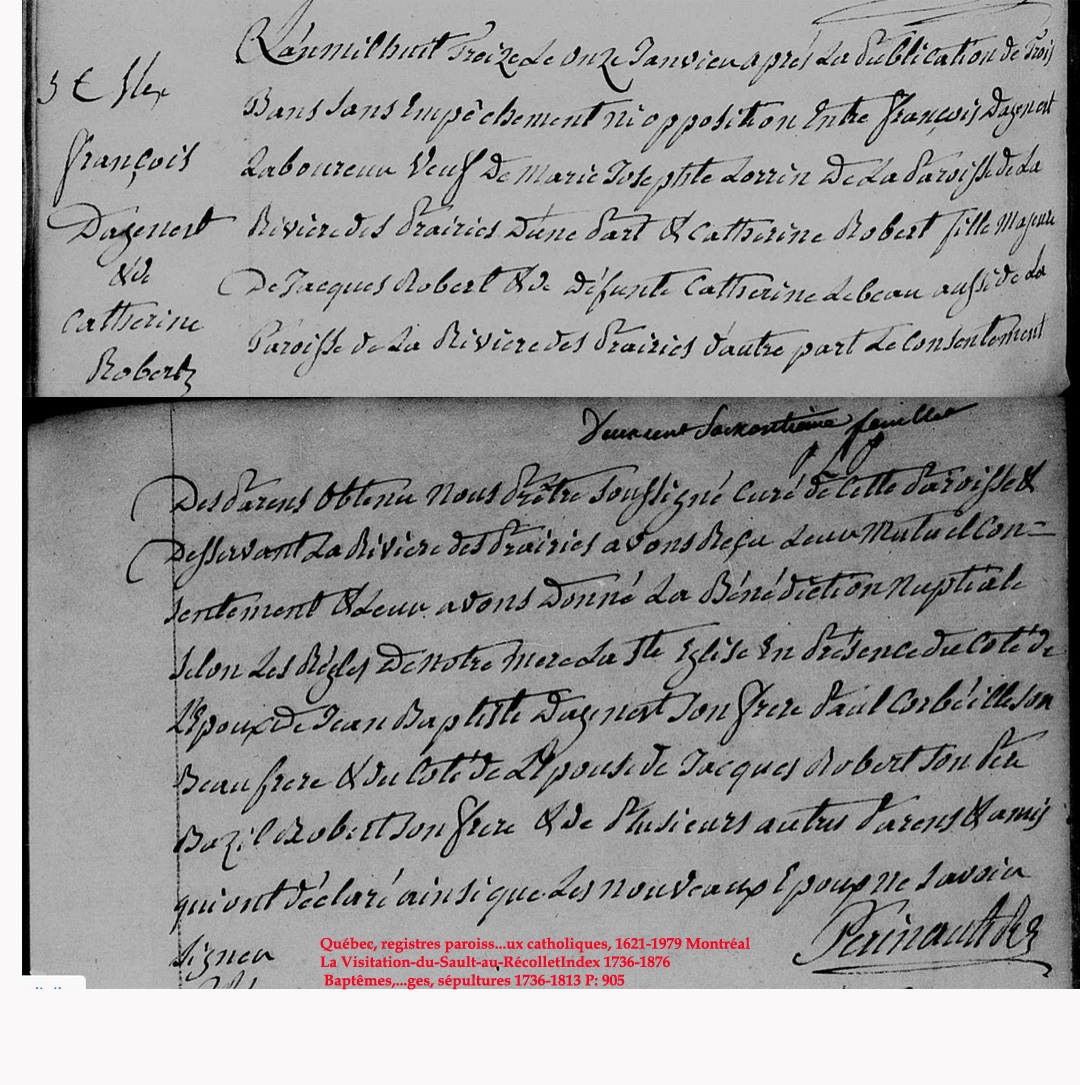 5e Mx
François
Dagenest
&de
Catherine
Robert
L'an mil huit Treize Le onze Janvier après La Publication de Trois
Bans Sans Empêchement ni opposition Entre François Dagenest
Laboureur Veuf De Marie Josephte Lorrin De La Paroisse de La
Rivière des Prairies D'une Part & Catherine Robert fille Majeure
De Jacques Robert & de défunte Catherine Lebeau aussi de La
Paroisse de La Rivière des Prairies d'autre part Le Consentement
feuillet
Des Parens Obtenu Nous Prêtre Soussigné Curé de Cette Paroisse &
Desservant La Rivière des Prairies avons Reçu Leur Mutuel Con=
sentement & Leur avons Donné La Bénédiction Nuptiale
Selon Les Règles De notre Mere La Ste Eglise En Présence du Coté de
L'Epoux de Jean Baptiste Dagenest Son frere Paul Corbéille son
Beau frere & du Coté de L'Epouse de Jacques Robert Son Père
Bazil Robert Son frere & de Plusieurs autres Parens & amis
qui ont déclaré ainsi que Les nouveaux Epoux Ne Savoir
Signer
Périnault
Québec, registres paroiss...ux catholiques, 1621-1979 Montréal
La Visitation-du-Sault-au-RécolletIndex 1736-1876
Baptêmes,...ges, sépultures 1736-1813 P: 905